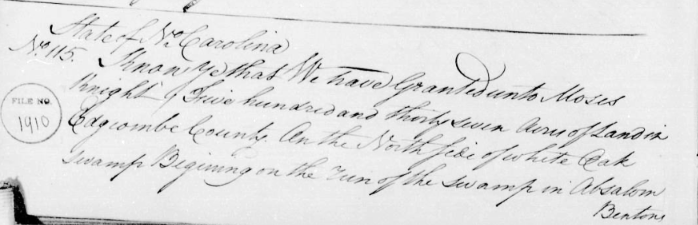 State of No Carolina
No. 115. Know Ye that We have Granted unto Moses
Knight five hundred and thirty seven Acres of Land in
Edgcombe County On the North Side of white Oak
Swamp Begining on the run of the Swamp in Absalom
Bentons
FILE NO.
1910